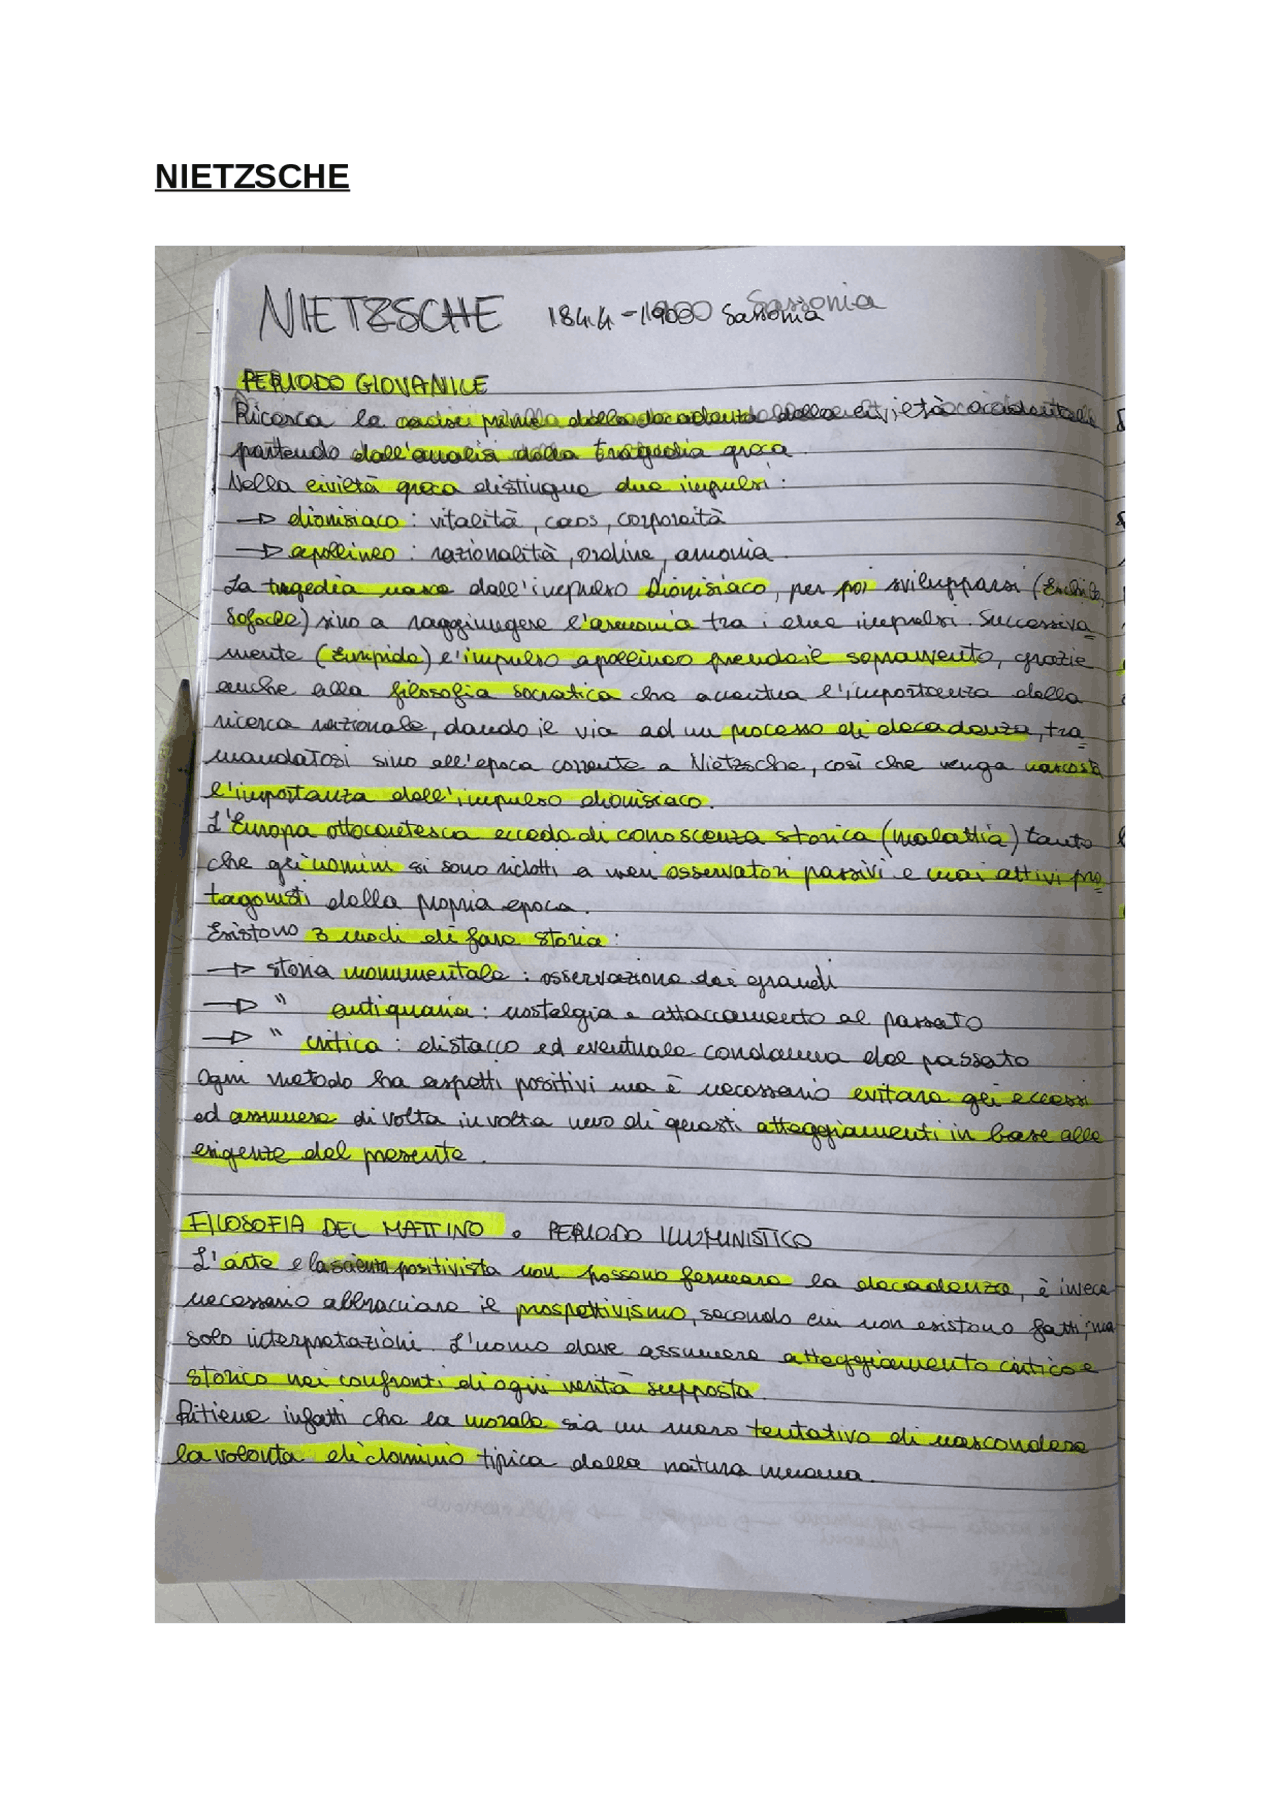 NIETZSCHE
NIETZSCHE 1844-1900 Sassonia
PERIODO GIOVANILE
Ricerca le radici prime della decadenza della civiltà occidentale
partendo dall'analisi della tragedia greca.
Nella civiltà greca distingue due impulsi:
→ dionisiaco: vitalità, caos, corporeità
→ apollineo: razionalità, ordine, armonia.
La tragedia nasce dall'impulso Dionisiaco, per poi svilupparsi (Eschilo,
Sofocle) sino a raggiungere l'armonia tra i due impulsi. Successiva
mente (Euripide) l'impulso apollineo prende il sopravvento, grazie
anche alla filosofia socratica che accentua l'importanza della
ricerca razionale, dando il via ad un processo di decadenza, tra
mandatosi sino all'epoca corrente a Nietzsche, così che venga nascosta
l'importanza dell'impulso dionisiaco.
L'Europa ottocentesca eccede di conoscenza storica (malattia) tanto
che gli uomini si sono ridotti a meri osservatori passivi e mai attivi pro
tagonisti della propria epoca.
Esistono 3 modi di fare storia:
→ storia monumentale: osservazione dei grandi
→ " antiquaria: nostalgia e attaccamento al passato
→ " critica: distacco ed eventuale condanna del passato
Ogni metodo ha aspetti positivi ma è necessario evitare gli eccessi
ed assumere di volta in volta uno di questi atteggiamenti in base alle
esigenze del presente.
FILOSOFIA DEL MATTINO o PERIODO ILLUMINISTICO
L'arte e la scienza positivista non possono fermare la decadenza, è invece
necessario abbracciare il prospettivismo, secondo cui non esistono fatti, ma
solo interpretazioni. L'uomo deve assumere atteggiamento critico e
storico nei confronti di ogni verità supposta.
Ritiene infatti che la morale sia un mero tentativo di nascondere
la volontà di dominio tipica della natura umana.